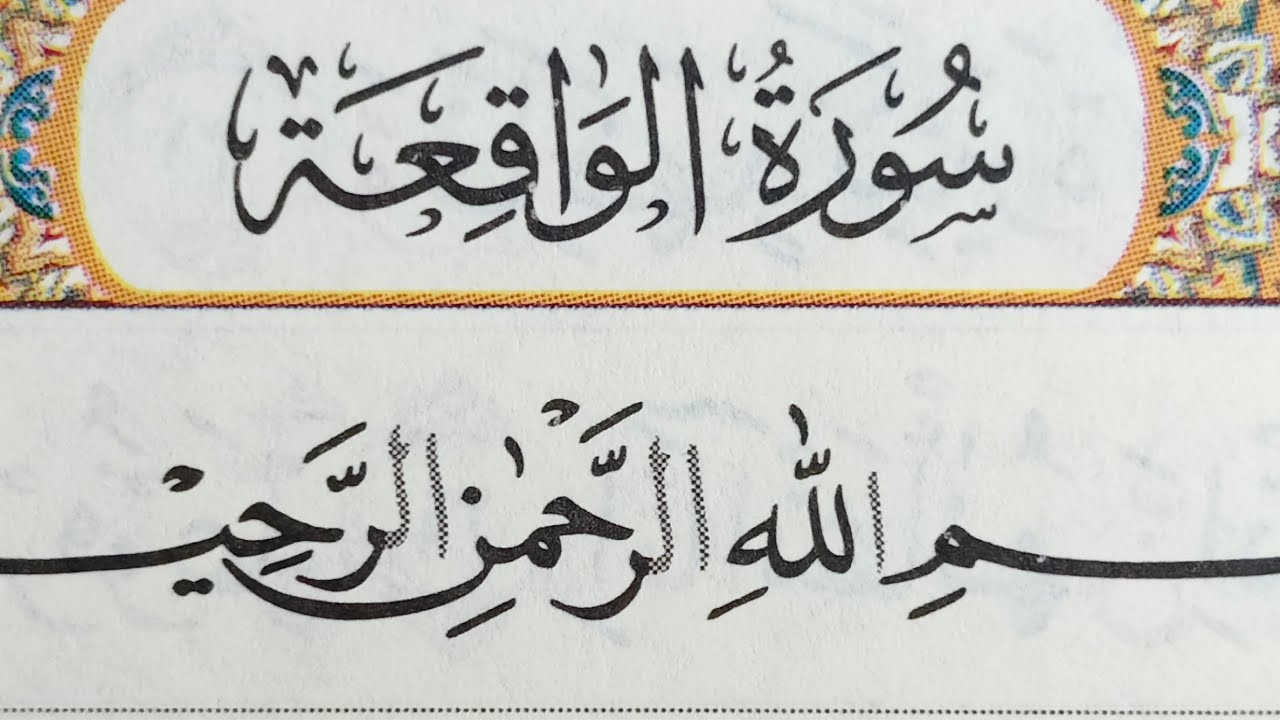 سُورَةُ الْوَاقِعَةِ
سْمِ اللّٰهِ الرَّحْمٰنِ الرَّحِيْ